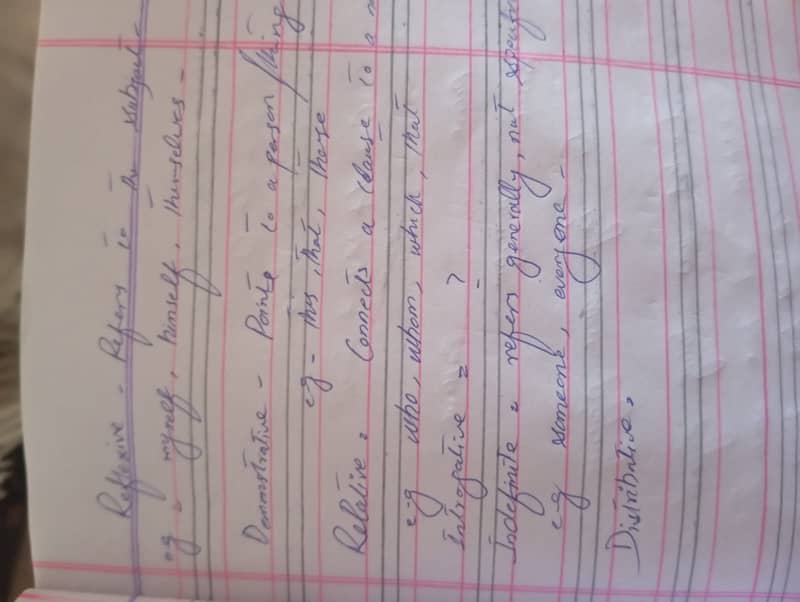 Reflexive - Refers to the subject -
eg = myself, himself, themselves -
Demonstrative - Points to a person / thing
eg - this, that, those
Relative = Connects a clause to a
eg who, whom, which, that
Introgative = ?
Indefinite = refers generally, not
eg someone, everyone -
Distributive =